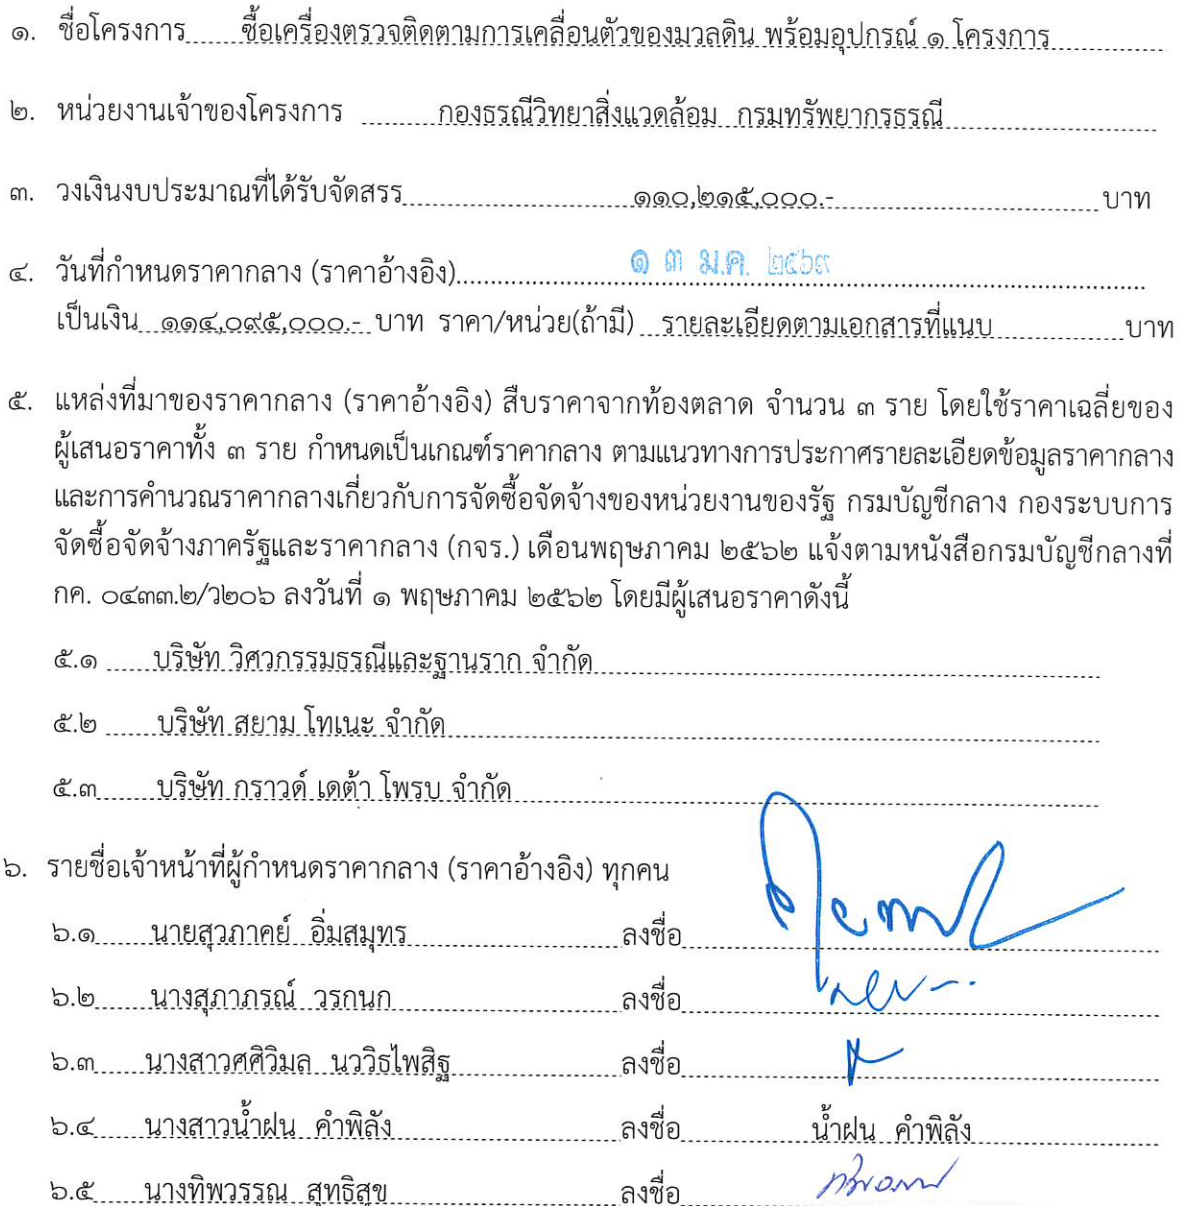 ๑. ชื่อโครงการ ซื้อเครื่องตรวจติดตามการเคลื่อนตัวของมวลดิน พร้อมอุปกรณ์ ๑ โครงการ
๒. หน่วยงานเจ้าของโครงการ กองธรณีวิทยาสิ่งแวดล้อม กรมทรัพยากรธรณี
๓. วงเงินงบประมาณที่ได้รับจัดสรร ๑๑๐,๒๑๕,๐๐๐.- บาท
๔. วันที่กำหนดราคากลาง (ราคาอ้างอิง) ๑ ๓ ม.ค. ๒๕๖๙
เป็นเงิน ๑๑๔,๐๙๕,๐๐๐.- บาท ราคา/หน่วย(ถ้ามี) รายละเอียดตามเอกสารที่แนบ บาท
๕. แหล่งที่มาของราคากลาง (ราคาอ้างอิง) สืบราคาจากท้องตลาด จำนวน ๓ ราย โดยใช้ราคาเฉลี่ยของ
ผู้เสนอราคาทั้ง ๓ ราย กำหนดเป็นเกณฑ์ราคากลาง ตามแนวทางการประกาศรายละเอียดข้อมูลราคากลาง
และการคำนวณราคากลางเกี่ยวกับการจัดซื้อจัดจ้างของหน่วยงานของรัฐ กรมบัญชีกลาง กองระบบการ
จัดซื้อจัดจ้างภาครัฐและราคากลาง (กจร.) เดือนพฤษภาคม ๒๕๖๒ แจ้งตามหนังสือกรมบัญชีกลางที่
กค. ๐๔๓๓.๒/ว๒๐๖ ลงวันที่ ๑ พฤษภาคม ๒๕๖๒ โดยมีผู้เสนอราคาดังนี้
๕.๑ บริษัท วิศวกรรมธรณีและฐานราก จำกัด
๕.๒ บริษัท สยาม โทเนะ จำกัด
๕.๓ บริษัท กราวด์ เดต้า โพรบ จำกัด
๖. รายชื่อเจ้าหน้าที่ผู้กำหนดราคากลาง (ราคาอ้างอิง) ทุกคน
๖.๑ นายสุวภาคย์ อิ่มสมุทร ลงชื่อ
๖.๒ นางสุภาภรณ์ วรกนก ลงชื่อ
๖.๓ นางสาวศศิวิมล นววิธไพสิฐ ลงชื่อ
๖.๔ นางสาวน้ำฝน คำพิลัง ลงชื่อ น้ำฝน คำพิลัง
๖.๕ นางทิพวรรณ สุทธิสุข ลงชื่อ